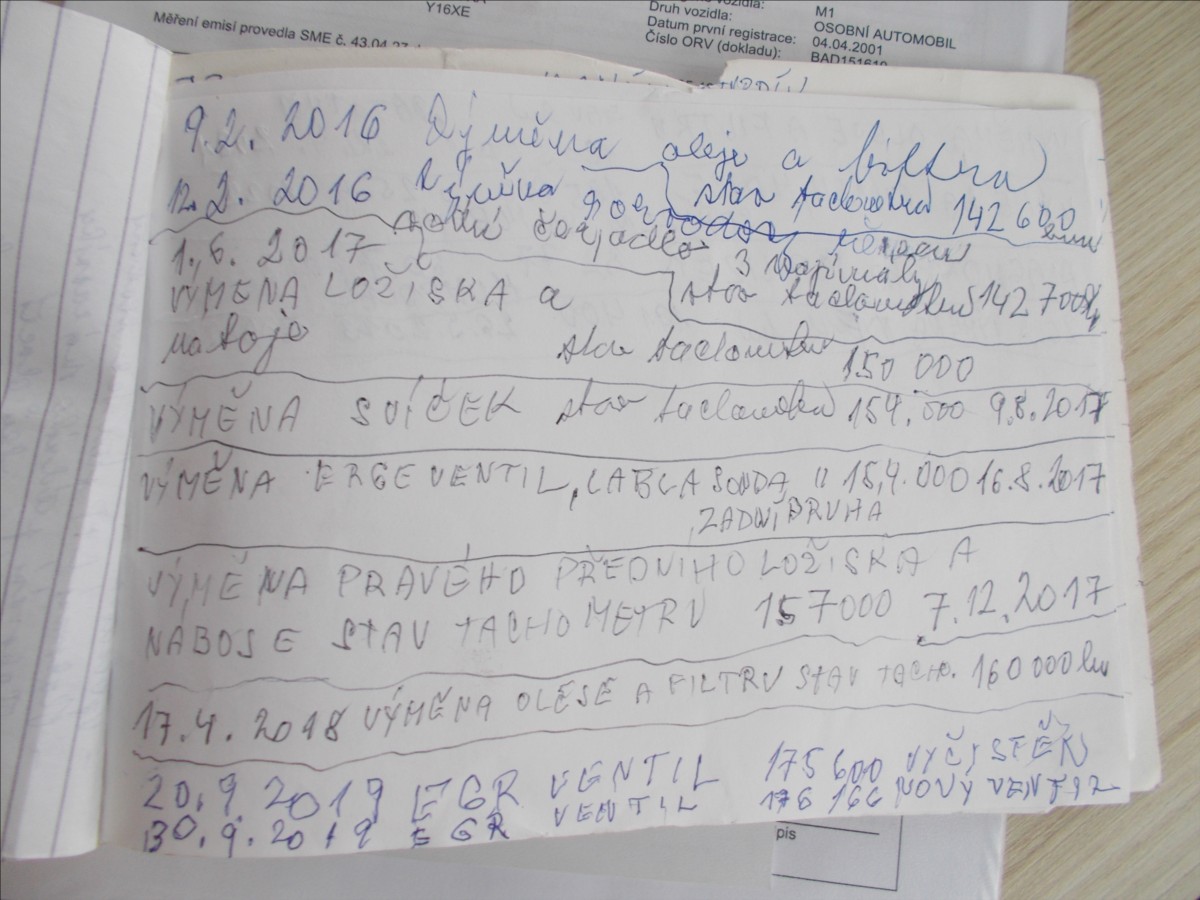 Y16XE
Měření emisí provedla SME č. 43.04.27
vozidla:
M1
Druh vozidla:
OSOBNÍ AUTOMOBIL
Datum první registrace:
04.04.2001
Číslo ORV (dokladu):
BAD151610
9.2. 2016 Výměna oleje a filtru
stav tachometru 142 600 km
12.2. 2016 Výměna rozvodov
vodní čerpadlo
3
stav tachometru 142 700
1.6. 2017
VÝMĚNA LOŽISKA a
naboje
stav tachometru 150 000
VÝMĚNA SVÍČEK stav tachometru 154.000 9.8.2017
VÝMĚNA ERGE VENTIL, LABLA SONDA 11 15,4.000 16.8.2017
, ZADNÍ DRUHA
VÝMĚNA PRAVÉHO PŘEDNÍHO LOŽISKA A
NABOSE STAV TACHOMETRU 157000 7.12.2017
17.4.2018 VÝMĚNA OLESE A FILTRU STAV TACHO. 160 000 km
20.9.2019 EGR VENTIL 175 600 VYČISTĚN
30.9.2019 EGR VENTIL 176 166 NOVÝ VENTIL
pis